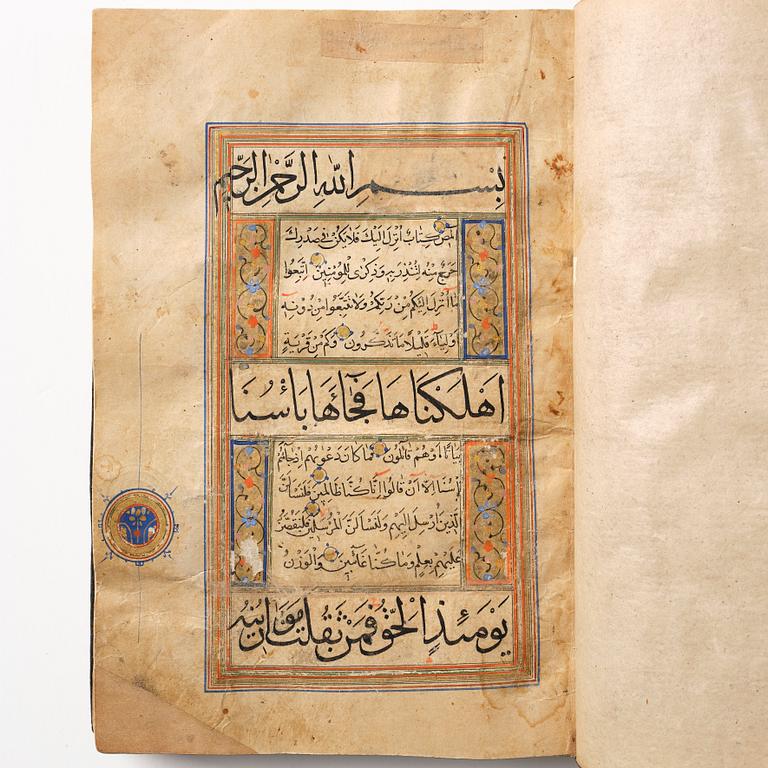 بِسْمِ اللهِ الرَّحْمٰنِ الرَّحِيْمِ
المص كتاب انزل اليك فلا يكن في صدرك
حرج منه لتنذر به وذكرى للمومنين اتبعوا
ما انزل اليكم من ربكم ولا تتبعوا من دونه
اولياء قليلا ما تذكرون وكم من قرية
اَهْلَكْنَاهَا فَجَائَهَا بَاْسُنَا
بياتا اوهم قائلون فما كان دعويهم اذ جائهم
باسنا الا ان قالوا انا كنا ظالمين فلنسئلن
الذين ارسل اليهم ولنسئلن المرسلين فلنقصن
عليهم بعلم وما كنا غائبين والوزن
يَوْمَئِذٍ الْحَقُّ فَمَنْ ثَقُلَتْ مَوَازِينُهُ